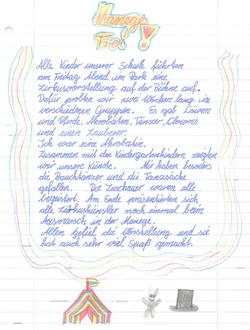 Manege
Frei!
Alle Kinder unserer Schule führten
am Freitag Abend im Park eine
Zirkusvorstellung auf der Bühne auf.
Dafür probten wir zwei Wochen lang in
verschiedenen Gruppen. Es gab Löwen
und Pferde, Akrobaten, Tänzer, Clowns
und einen Zauberer.
Ich war eine Akrobatin.
Zusammen mit den Kindergartenkindern zeigten
wir unsere Künste. Mir haben besonders
die Bauchtänzer und die Tanzsäcke
gefallen. Die Zuschauer waren alle
begeistert. Am Ende präsentierten sich
alle Zirkuskünstler noch einmal beim
Ausmarsch in der Manege.
Allen gefiel die Vorstellung und sie
hat auch sehr viel Spaß gemacht.